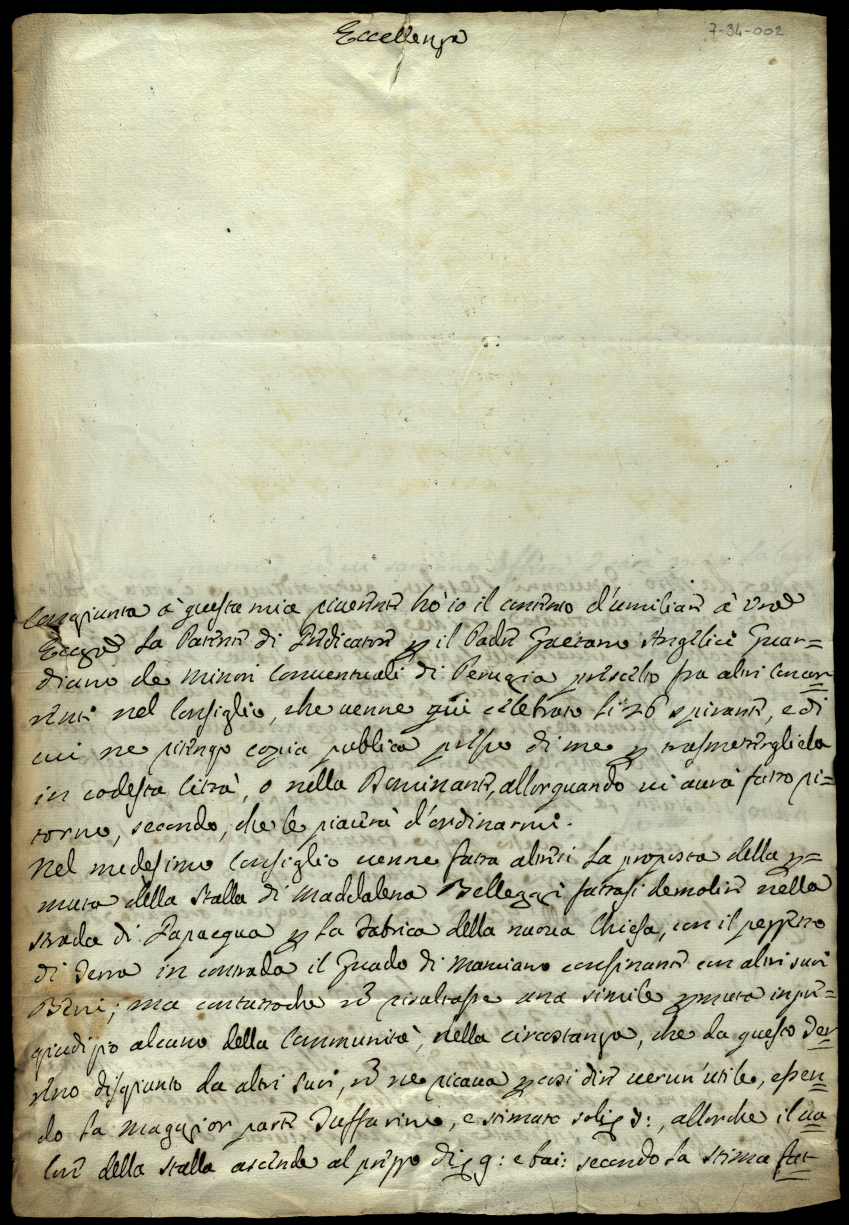 7-34-002
Eccellenza
Congiunta à questa mia riverente hò io il contento d'umiliare à Vrã
Eccza La Patente di Predicatore p il Padre Gaetano Angelici Guar=
diano de Minori Conventuali di Perugia prescelto fra altri Concor
renti nel Consiglio, che venne qui celebrato li 26 spirante, e di
cui ne ritengo copia publica presso di me p trasmettergliela
in codesta Città, o nella Dominante, allorquando vi avrà fatto ri=
torno, secondo, che le piacerà d'ordinarmi.
Nel medesimo Consiglio venne fatta altresi La proposta della p=
muta della Stalla di Maddalena Bellezzi fattasi demolire nella
strada di Papacqua p La Fabrica della nuova Chiesa, con il pezzetto
di Terra in contrada il Guado di Manciano confinante con altri suoi
Beni; ma contuttoche nõ risultasse una simile pmuta in pre=
giudizio alcuno della Communità, nella circostanza, che da questo Ter
reno disgiunto da altri suoi, nõ ne ricava p cosi dire verun'utile, essen=
do La maggior parte Tuffarino, e stimato soli 3:, allorche il va
lore della stalla ascende al prezzo di 9: e bai: secondo La stima fat